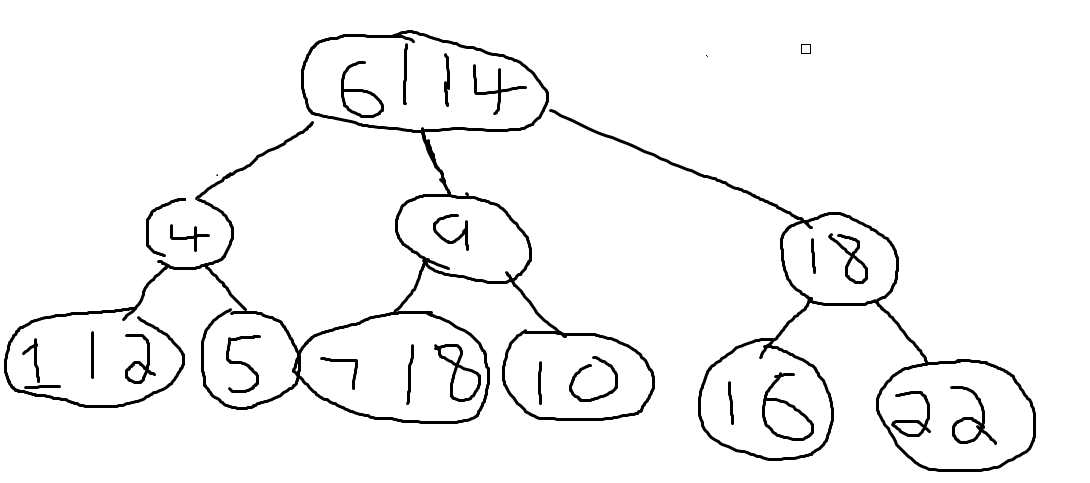 6 | 14
4 9 18
1 | 2 5 7 | 8 10 16 22